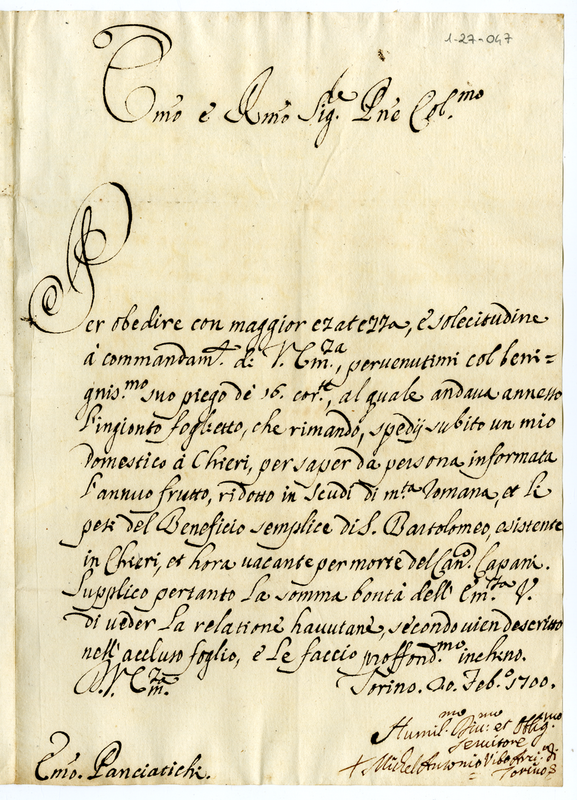 1-27-047
Emo e Rmo Sig.re Pne Col.mo
Per obedire con maggior ezatezza, e solecitudine
à commandam.ti di V. Em.za, pervenutimi col beni=
gnis.mo suo piego de 16. cor.te, al quale andava annesso
l'ingionto foglietto, che rimando, spedij subito un mio
domestico à Chieri, per saper da persona informata
l'annuo frutto, ridotto in scudi di m.ta Romana, et le
pesi del Beneficio semplice di S. Bartolomeo, esistente
in Chieri, et hora vacante per morte del Can.o Capani.
Supplico pertanto la somma bontà dell' Em.za V.
di veder la relatione havutane, secondo vien descritto
nell' accluso foglio, e le faccio proffond.mo inchino.
D. V. Em.za Torino. 20. Feb.o 1700.
Humil.mo Div.mo et Obblig.mo
servitore
+ Michel Antonio Vibo Arci. di
Torino
Emo. Panciatichi.